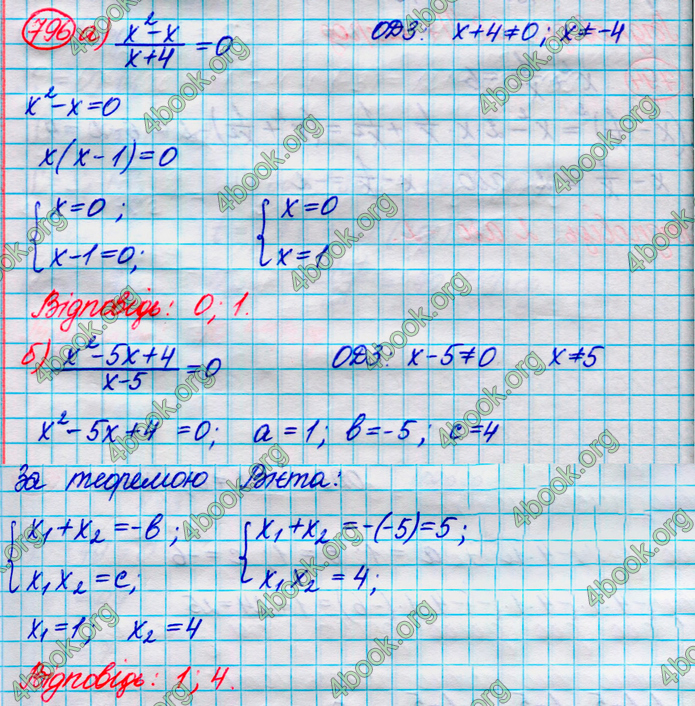 796 а) (x² - x)/(x+4) = 0 ОДЗ: x+4≠0; x≠-4
x² - x = 0
x(x-1) = 0
{ x=0; { x=0
{ x-1=0; { x=1
Відповідь: 0; 1.
б) (x² - 5x + 4)/(x-5) = 0 ОДЗ: x-5≠0 x≠5
x² - 5x + 4 = 0; a=1; в=-5; c=4
За теоремою Вієта:
{ x₁+x₂ = -в; { x₁+x₂ = -(-5) = 5;
{ x₁x₂ = c; { x₁x₂ = 4;
x₁=1; x₂=4
Відповідь: 1; 4.
4book.org